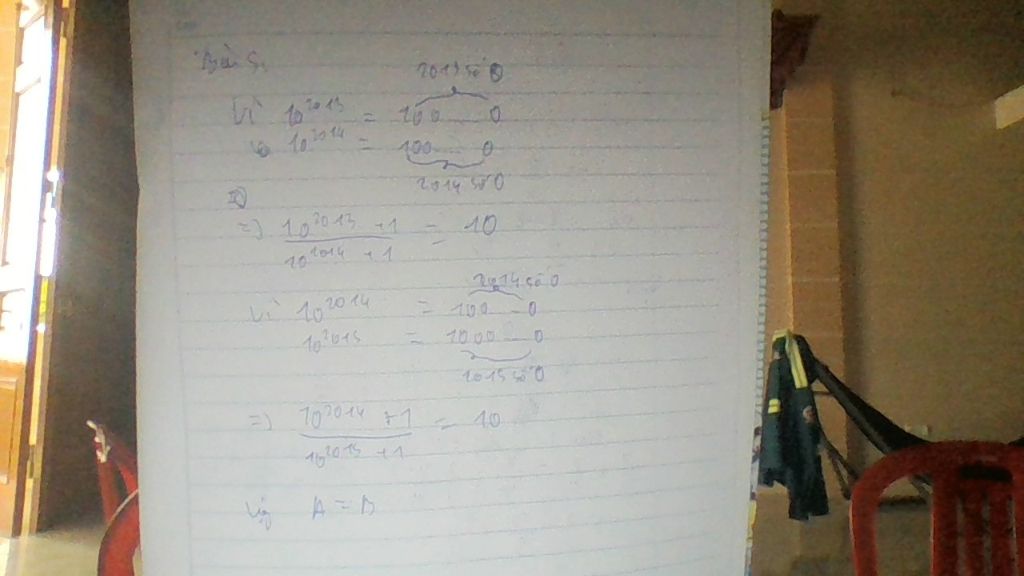 Bài 5:
2013 số 0
Vì 10^2013 = 100...0
10^2014 = 100...0
2014 số 0
=> (10^2013 + 1)/(10^2014 + 1) = 10
2014 số 0
Vì 10^2014 = 100...0
10^2015 = 1000...0
2015 số 0
=> (10^2014 + 1)/(10^2015 + 1) = 10
Vậy A = B